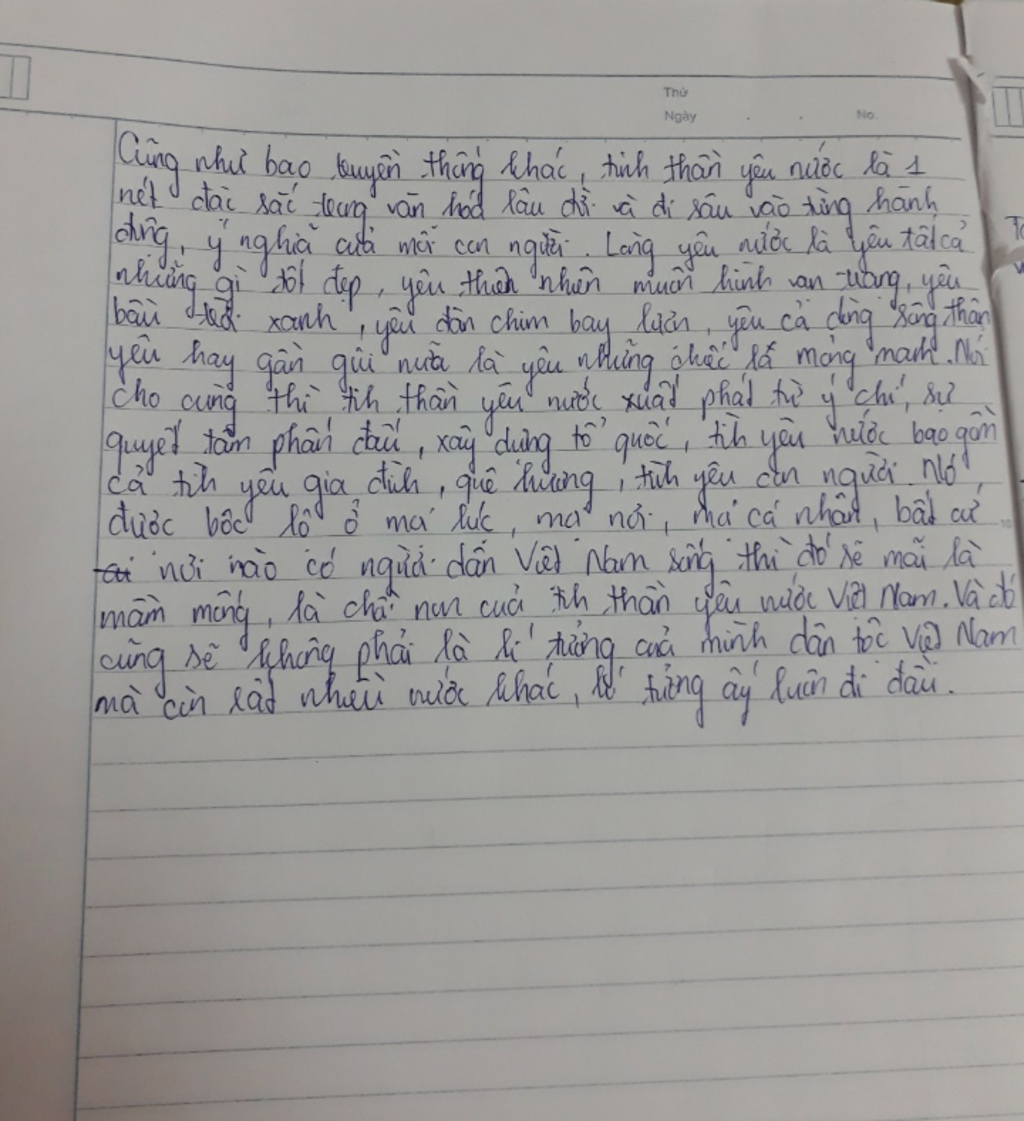 Thứ
Ngày . . No.
Cũng như bao truyền thống khác, tinh thần yêu nước là 1
nét đặc sắc trong văn hoá lâu đời và đi sâu vào từng hành
động, ý nghĩa của mỗi con người. Lòng yêu nước là yêu tất cả
những gì tốt đẹp, yêu thiên nhiên muôn hình vạn trạng, yêu
bầu trời xanh, yêu đàn chim bay lượn, yêu cả dòng sông thân
yêu hay gần gũi nữa là yêu những chiếc lá mỏng manh. Nói
cho cùng thì tinh thần yêu nước xuất phát từ ý chí, sự
quyết tâm phấn đấu, xây dựng tổ quốc, tình yêu nước bao gồm
cả tình yêu gia đình, quê hương, tình yêu con người. Nó
được bộc lộ ở mọi lúc, mọi nơi, mọi cá nhân, bất cứ
nơi nào có người dân Việt Nam sống thì đó sẽ mãi là
mầm mống, là chồi non của tinh thần yêu nước Việt Nam. Và đó
cũng sẽ không phải là lí tưởng của mình dân tộc Việt Nam
mà còn rất nhiều nước khác, lí tưởng ấy luôn đi đầu.